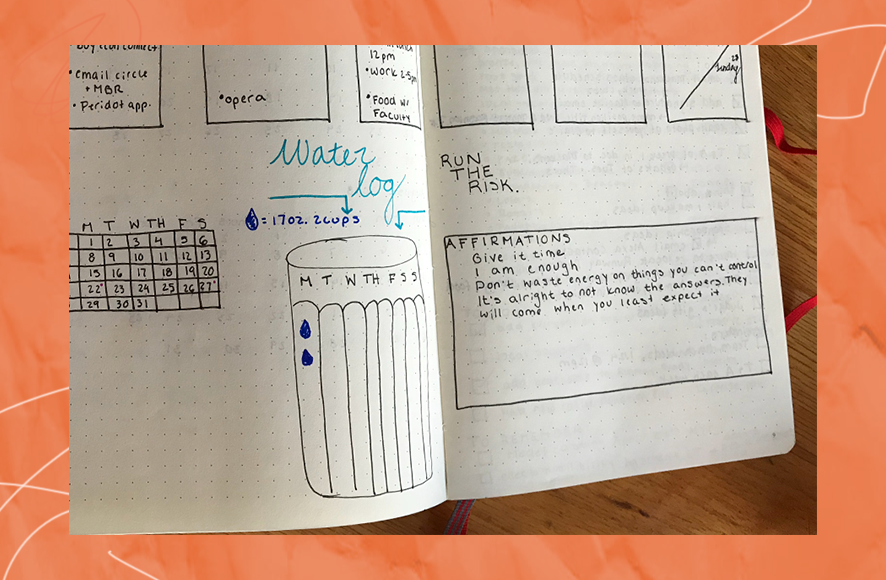 Buy icon connect
• email circle
+ MBR
• Peridot app.
• opera
12pm
• work 2-5pm
• Food w/
Faculty
Water
log
= 17oz. 2cups
M T W TH F S
1 2 3 4 5 6
8 9 10 11 12 13
15 16 17 18 19 20
22 23 24 25 26 27
29 30 31
M T W TH F S S
28
Sunday
RUN
THE
RISK.
AFFIRMATIONS
Give it time
I am enough
Don't waste energy on things you can't control
It's alright to not know the answers. They
will come when you least expect it